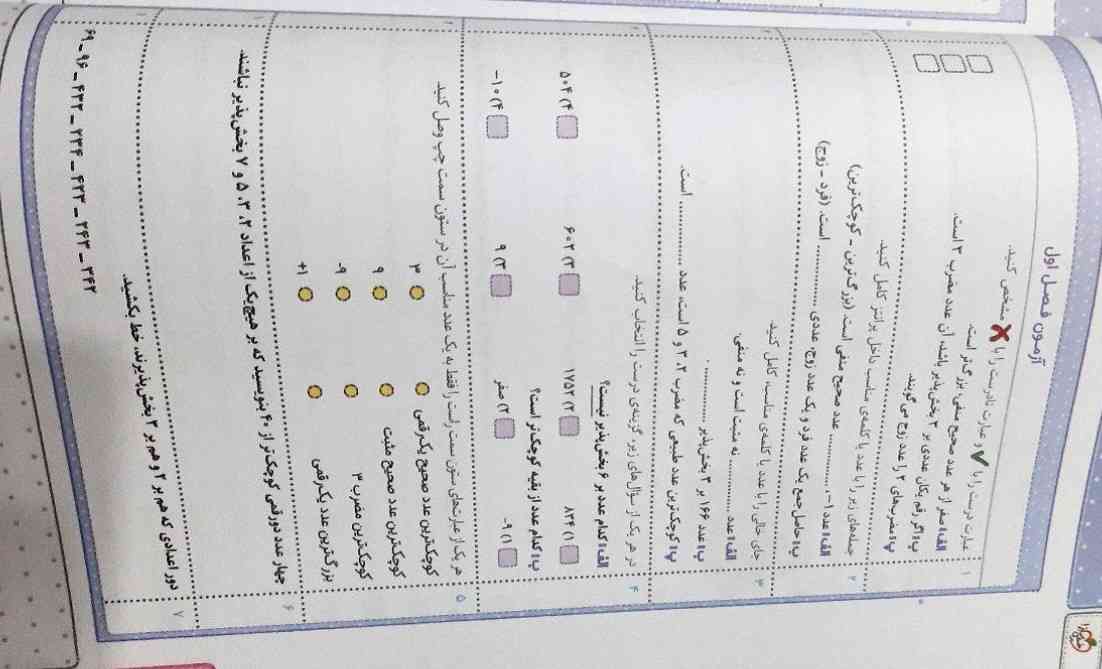 آزمون فصل اول
۱
عبارت درست را با ✓ و عبارت نادرست را با ✗ مشخص کنید.
الف) صفر از هر عدد صحیح منفی، بزرگ‌تر است.
ب) اگر رقم یکان عددی بر ۳ بخش‌پذیر باشد، آن عدد مضرب ۳ است.
پ) مضرب‌های ۲ را عدد زوج می‌گویند.
۲
جمله‌های زیر را با عدد یا کلمه‌ی مناسب داخل پرانتز کامل کنید.
الف) عدد ۱- .......... عدد صحیح منفی است. (بزرگ‌ترین - کوچک‌ترین)
ب) حاصل جمع یک عدد فرد و یک عدد زوج، عددی .......... است. (فرد - زوج)
۳
جاهای خالی را با عدد یا کلمه‌ی مناسب، کامل کنید.
الف) عدد .......... نه مثبت است و نه منفی.
ب) عدد ۱۶۶ بر ۳ بخش‌پذیر ..........
پ) کوچک‌ترین عدد طبیعی که مضرب ۲، ۳ و ۵ است، عدد .......... است.
۴
در هر یک از سؤال‌های زیر، گزینه‌ی درست را انتخاب کنید.
الف) کدام عدد بر ۶ بخش‌پذیر نیست؟
۱) ۸۳۴ ۲) ۱۷۵۲ ۳) ۶۰۲ ۴) ۵۰۴
ب) کدام عدد از بقیه کوچک‌تر است؟
۱) ۹- ۲) صفر ۳) ۹ ۴) ۱۰-
۵
هر یک از عبارت‌های ستون سمت راست را فقط به یک عدد مناسب آن در ستون سمت چپ وصل کنید.
کوچکترین عدد صحیح یک‌رقمی ۳
کوچکترین عدد صحیح مثبت ۹
کوچکترین مضرب ۳ ۹-
بزرگ‌ترین عدد یک‌رقمی ۱+
۶
چهار عدد دورقمی کوچک‌تر از ۶۰ بنویسید که بر هیچ‌یک از اعداد ۲، ۳، ۵ و ۷ بخش‌پذیر نباشند.
۷
دور اعدادی که هم بر ۲ و هم بر ۳ بخش‌پذیرند، خط بکشید.